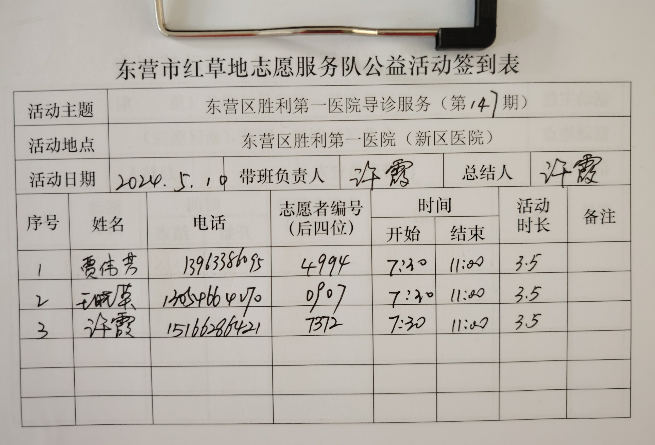 东营市红草地志愿服务队公益活动签到表
活动主题 东营区胜利第一医院导诊服务（第147期）
活动地点 东营区胜利第一医院（新区医院）
活动日期 2024.5.10 带班负责人 许霞 总结人 许霞
序号 姓名 电话 志愿者编号（后四位） 时间 开始 结束 活动时长 备注
1 贾伟芳 13963386095 4994 7:30 11:00 3.5
2 0907 7:30 11:00 3.5
3 许霞 15166286421 7372 7:30 11:00 3.5